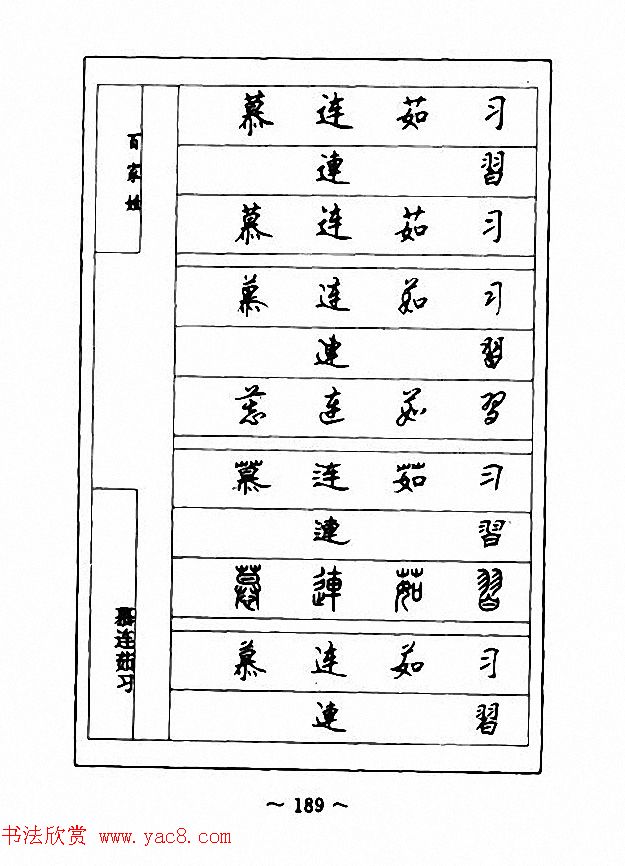 百家姓
慕 连 茹 习
連 習
慕 连 茹 习
慕 连 茹 习
連 習
慕 连 茹 習
慕 连 茹 习
連 習
慕 連 茹 習
慕 连 茹 习
連 習
慕连茹习
～ 189 ～
书法欣赏 www.yac8.com